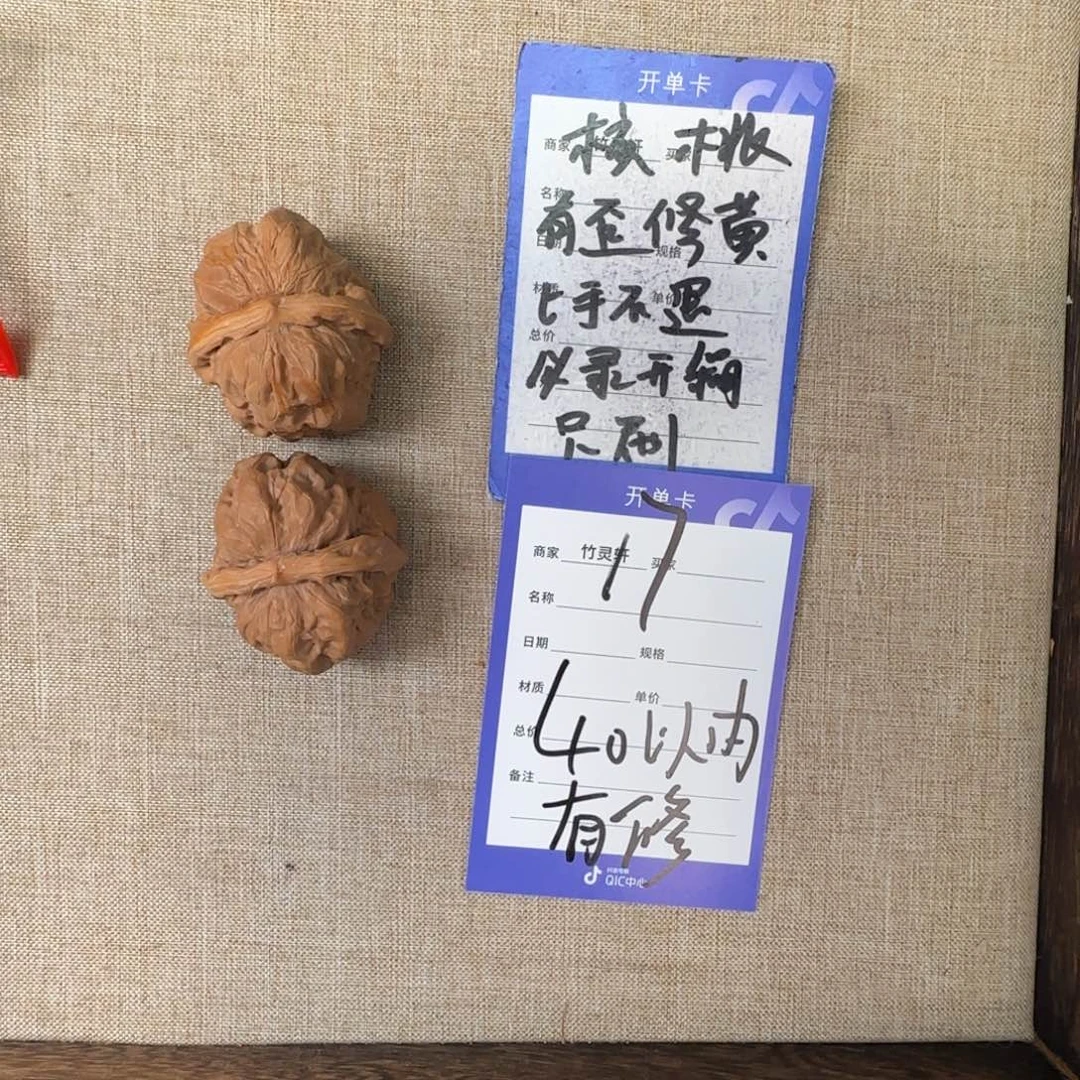 开单卡
核桃
商家 竹灵轩 买家
名称
有歪修黄
日期 规格
上手不退
材质 单价
总价
必录开箱
只刷
开单卡
17
商家 竹灵轩 买家
名称
日期 规格
材质 单价
40以内
总价
备注
有修
抖音电商
QIC中心